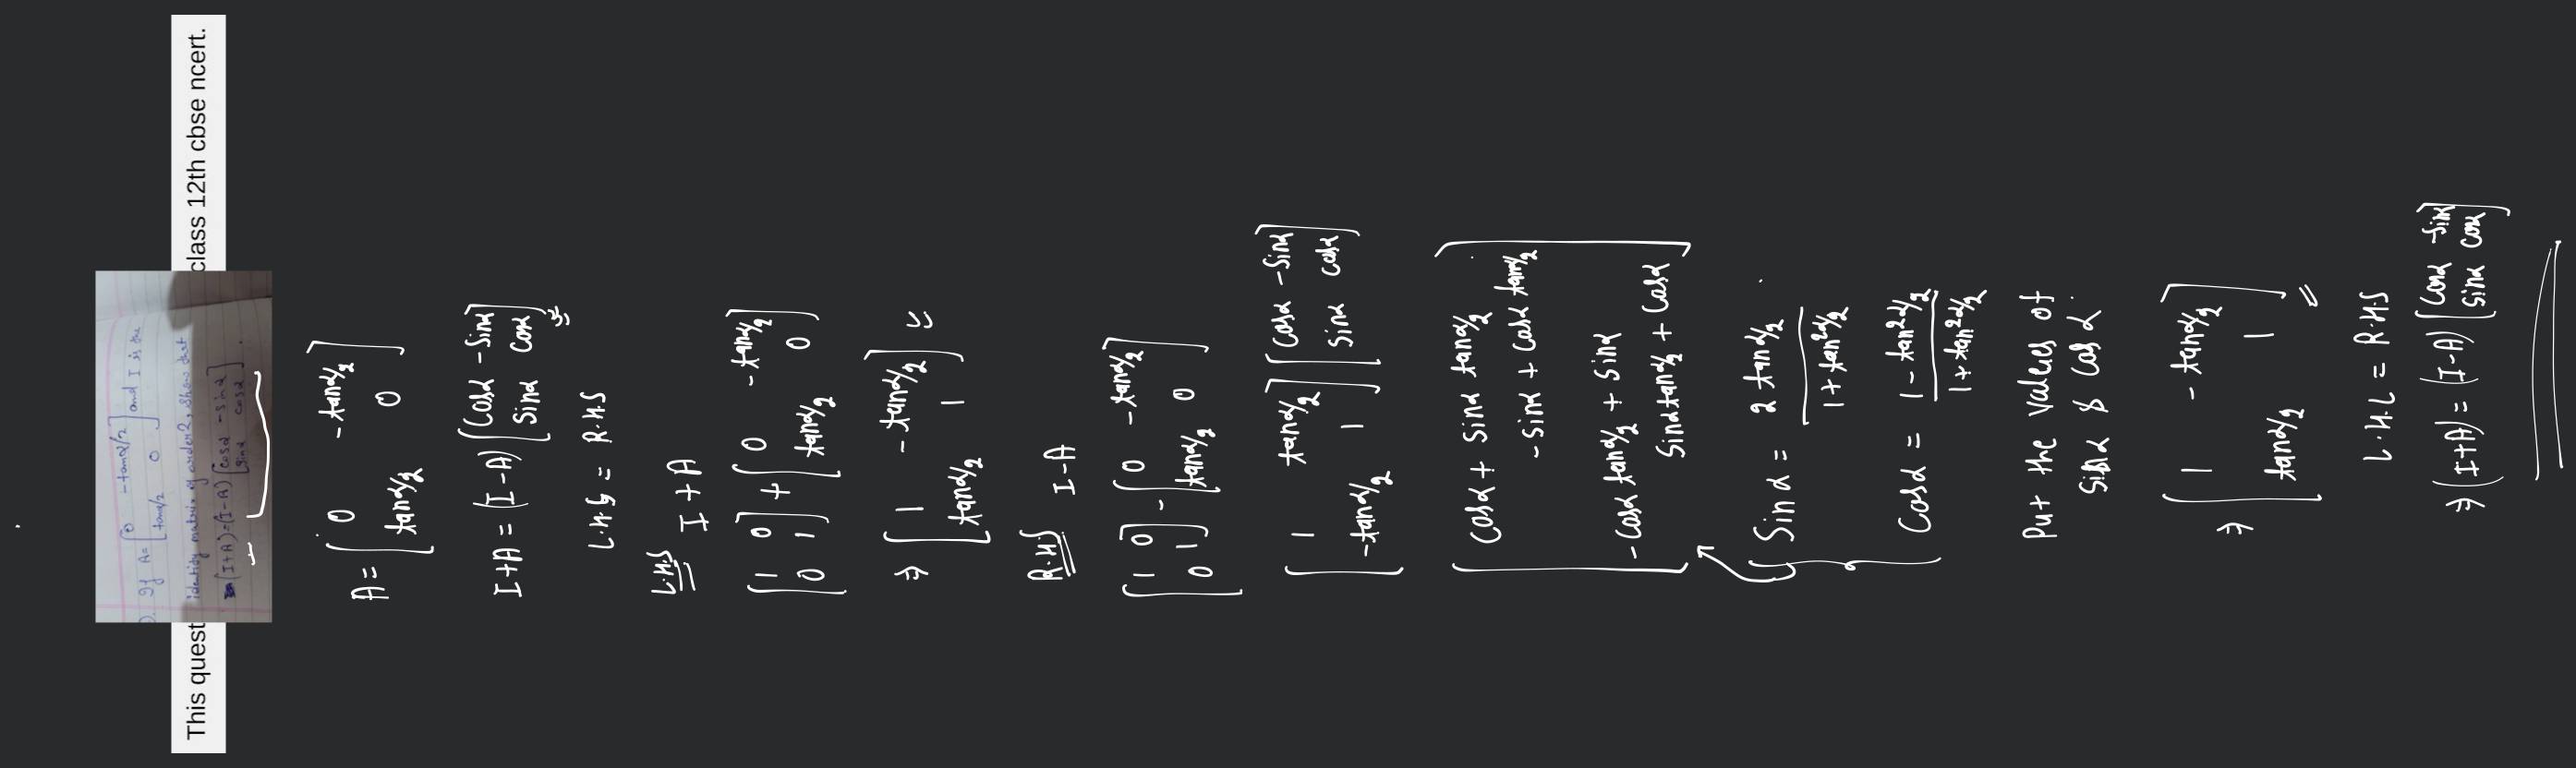 This quest class 12th cbse ncert.
). If A = [0 -tanα/2
tanα/2 0] and I is the
identity matrix of order 2, show that
(I+A) = (I-A) [cosα -sinα
sinα cosα].
A = [0 -tanα/2
tanα/2 0]
I+A = (I-A) [Cosα -Sinα
Sinα cosα]
L.H.S = R.H.S
L.H.S I+A
[1 0
0 1] + [0 -tanα/2
tanα/2 0]
⇒ [1 -tanα/2
tanα/2 1]
R.H.S I-A
[1 0
0 1] - [0 -tanα/2
tanα/2 0]
[1 tanα/2
-tanα/2 1] [Cosα -Sinα
Sinα cosα]
[Cosα + Sinα tanα/2
-Sinα + Cosα tanα/2
-Cosα tanα/2 + Sinα
Sinα tanα/2 + Cosα]
Sinα = 2 tanα/2
1 + tan²α/2
Cosα = 1 - tan²α/2
1 + tan²α/2
Put the values of
Sinα & Cosα.
⇒ [1 -tanα/2
tanα/2 1]
L.H.L = R.H.S
⇒ (I+A) = (I-A) [Cosα -Sinα
Sinα cosα]